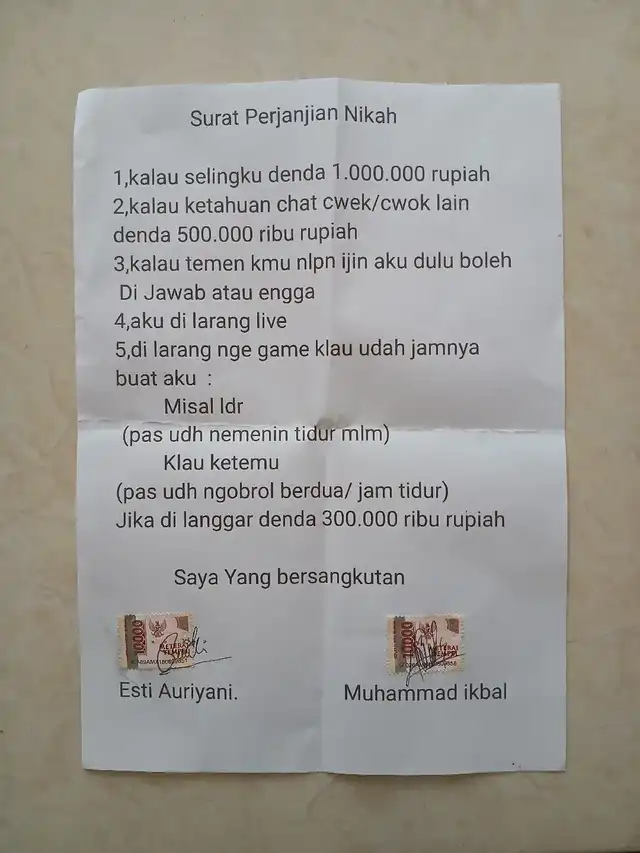 Surat Perjanjian Nikah
1,kalau selingku denda 1.000.000 rupiah
2,kalau ketahuan chat cwek/cwok lain
denda 500.000 ribu rupiah
3,kalau temen kmu nlpn ijin aku dulu boleh
Di Jawab atau engga
4,aku di larang live
5,di larang nge game klau udah jamnya
buat aku :
Misal ldr
(pas udh nemenin tidur mlm)
Klau ketemu
(pas udh ngobrol berdua/ jam tidur)
Jika di langgar denda 300.000 ribu rupiah
Saya Yang bersangkutan
10000
METERAI
TEMPEL
10000
METERAI
TEMPEL
Esti Auriyani.
Muhammad ikbal